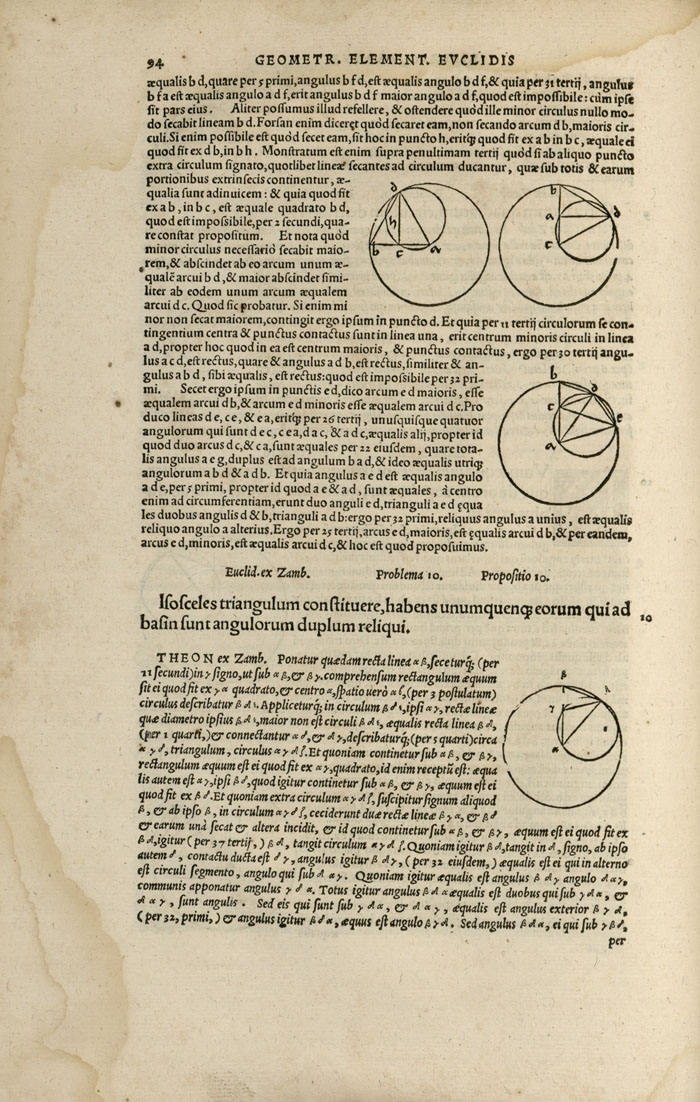 94 GEOMETR. ELEMENT. EVCLIDIS
æqualis b d, quare per 5 primi, angulus b f d, est æqualis angulo b d f, & quia per 31 tertij, angulus
b f a est æqualis angulo a d f, erit angulus b d f maior angulo a d f, quod est impossibile: cùm ipse
sit pars eius. Aliter possumus illud refellere, & ostendere quòd ille minor circulus nullo mo-
do secabit lineam b d. Forsan enim diceret quòd secaret eam, non secando arcum d b, maioris cir-
culi. Si enim possibile est quòd secet eam, sit hoc in puncto h, eritq́ꝫ quod fit ex a b in b c, æquale ei
quod fit ex d b, in b h. Monstratum est enim supra penultimam tertij quòd si ab aliquo puncto
extra circulum signato, quotlibet lineæ secantes ad circulum ducantur, quæ sub totis & earum
portionibus extrinsecis continentur, æ-
qualia sunt adinuicem: & quia quod fit
ex a b, in b c, est æquale quadrato b d,
quod est impossibile, per 2 secundi, qua-
re constat propositum. Et nota quòd
minor circulus necessariò secabit maio-
rem, & abscindet ab eo arcum unum æ-
qualē arcui b d, & maior abscindet simi-
liter ab eodem unum arcum æqualem
arcui d c. Quod sic probatur. Si enim mi
nor non secat maiorem, contingit ergo ipsum in puncto d. Et quia per 11 tertij circulorum se con-
tingentium centra & punctus contactus sunt in linea una, erit centrum minoris circuli in linea
a d, propter hoc quod in ea est centrum maioris, & punctus contactus, ergo per 30 tertij angu-
lus a c d, est rectus, quare & angulus a d b, est rectus, similiter & an-
gulus a b d, sibi æqualis, est rectus: quod est impossibile per 32 pri-
mi. Secet ergo ipsum in punctis e d, dico arcum e d maioris, esse
æqualem arcui d b, & arcum e d minoris esse æqualem arcui d c. Pro
duco lineas d e, c e, & e a, eritq́ꝫ per 26 tertij, unusquisque quatuor
angulorum qui sunt d e c, c e a, d a c, & a d c, æqualis alij, propter id
quod duo arcus d c, & c a, sunt æquales per 22 eiusdem, quare tota-
lis angulus a e g, duplus est ad angulum b a d, & ideo æqualis utriq́ꝫ
angulorum a b d & a d b. Et quia angulus a e d est æqualis angulo
a d e, per 5 primi, propter id quod a e & a d, sunt æquales, à centro
enim ad circumferentiam, erunt duo anguli e d, trianguli a e d ęqua
les duobus angulis d & b, trianguli a d b: ergo per 32 primi, reliquus angulus a unius, est æqualis
reliquo angulo a alterius. Ergo per 25 tertij, arcus e d, maioris, est ęqualis arcui d b, & per eandem,
arcus e d, minoris, est æqualis arcui d c, & hoc est quod proposuimus.
Euclid. ex Zamb. Problema 10. Propositio 10.
Isosceles triangulum constituere, habens unumquenq́ꝫ eorum qui ad 10
basin sunt angulorum duplum reliqui.
THEON ex Zamb. Ponatur quædam recta linea α β, seceturq́; (per
11 secundi) in γ signo, ut sub α β, & β γ, comprehensum rectangulum æquum
sit ei quod fit ex γ α quadrato, & centro α, spatio uerò α β, (per 3 postulatum)
circulus describatur β δ ε. Appliceturq́; in circulum β δ ε, ipsi α γ, rectæ lineæ
quæ diametro ipsius β δ ε, maior non est circuli β δ ε, æqualis recta linea β δ,
(per 1 quarti,) & connectantur α δ, & δ γ, describaturq́; (per 5 quarti) circa
α γ δ, triangulum, circulus α γ δ ζ. Et quoniam continetur sub α β, & β γ,
rectangulum æquum est ei quod fit ex α γ, quadrato, id enim receptũ est: æqua
lis autem est α γ, ipsi β δ, quod igitur continetur sub α β, & β γ, æquum est ei
quod fit ex β δ. Et quoniam extra circulum α γ δ ζ, suscipitur signum aliquod
β, & ab ipso β, in circulum α γ δ ζ, ceciderunt duæ rectæ lineæ β γ α, & β δ
& earum unà secat & altera incidit, & id quod continetur sub α β, & β γ, æquum est ei quod fit ex
β δ, igitur (per 37 tertij,) β δ, tangit circulum α γ δ ζ. Quoniam igitur β δ, tangit in δ, signo, ab ipso
autem δ, contactu ducta est δ γ, angulus igitur β δ γ, (per 32 eiusdem,) æqualis est ei qui in alterno
est circuli segmento, angulo qui sub δ α γ. Quoniam igitur æqualis est angulus β δ γ angulo δ α γ,
communis apponatur angulus γ δ α. Totus igitur angulus β δ α æqualis est duobus qui sub γ δ α, &
δ α γ, sunt angulis. Sed eis qui sunt sub γ δ α, & δ α γ, æqualis est angulus exterior β γ δ,
(per 32, primi,) & angulus igitur β δ α, æquus est angulo β γ δ. Sed angulus β δ α, ei qui sub γ β δ,
per